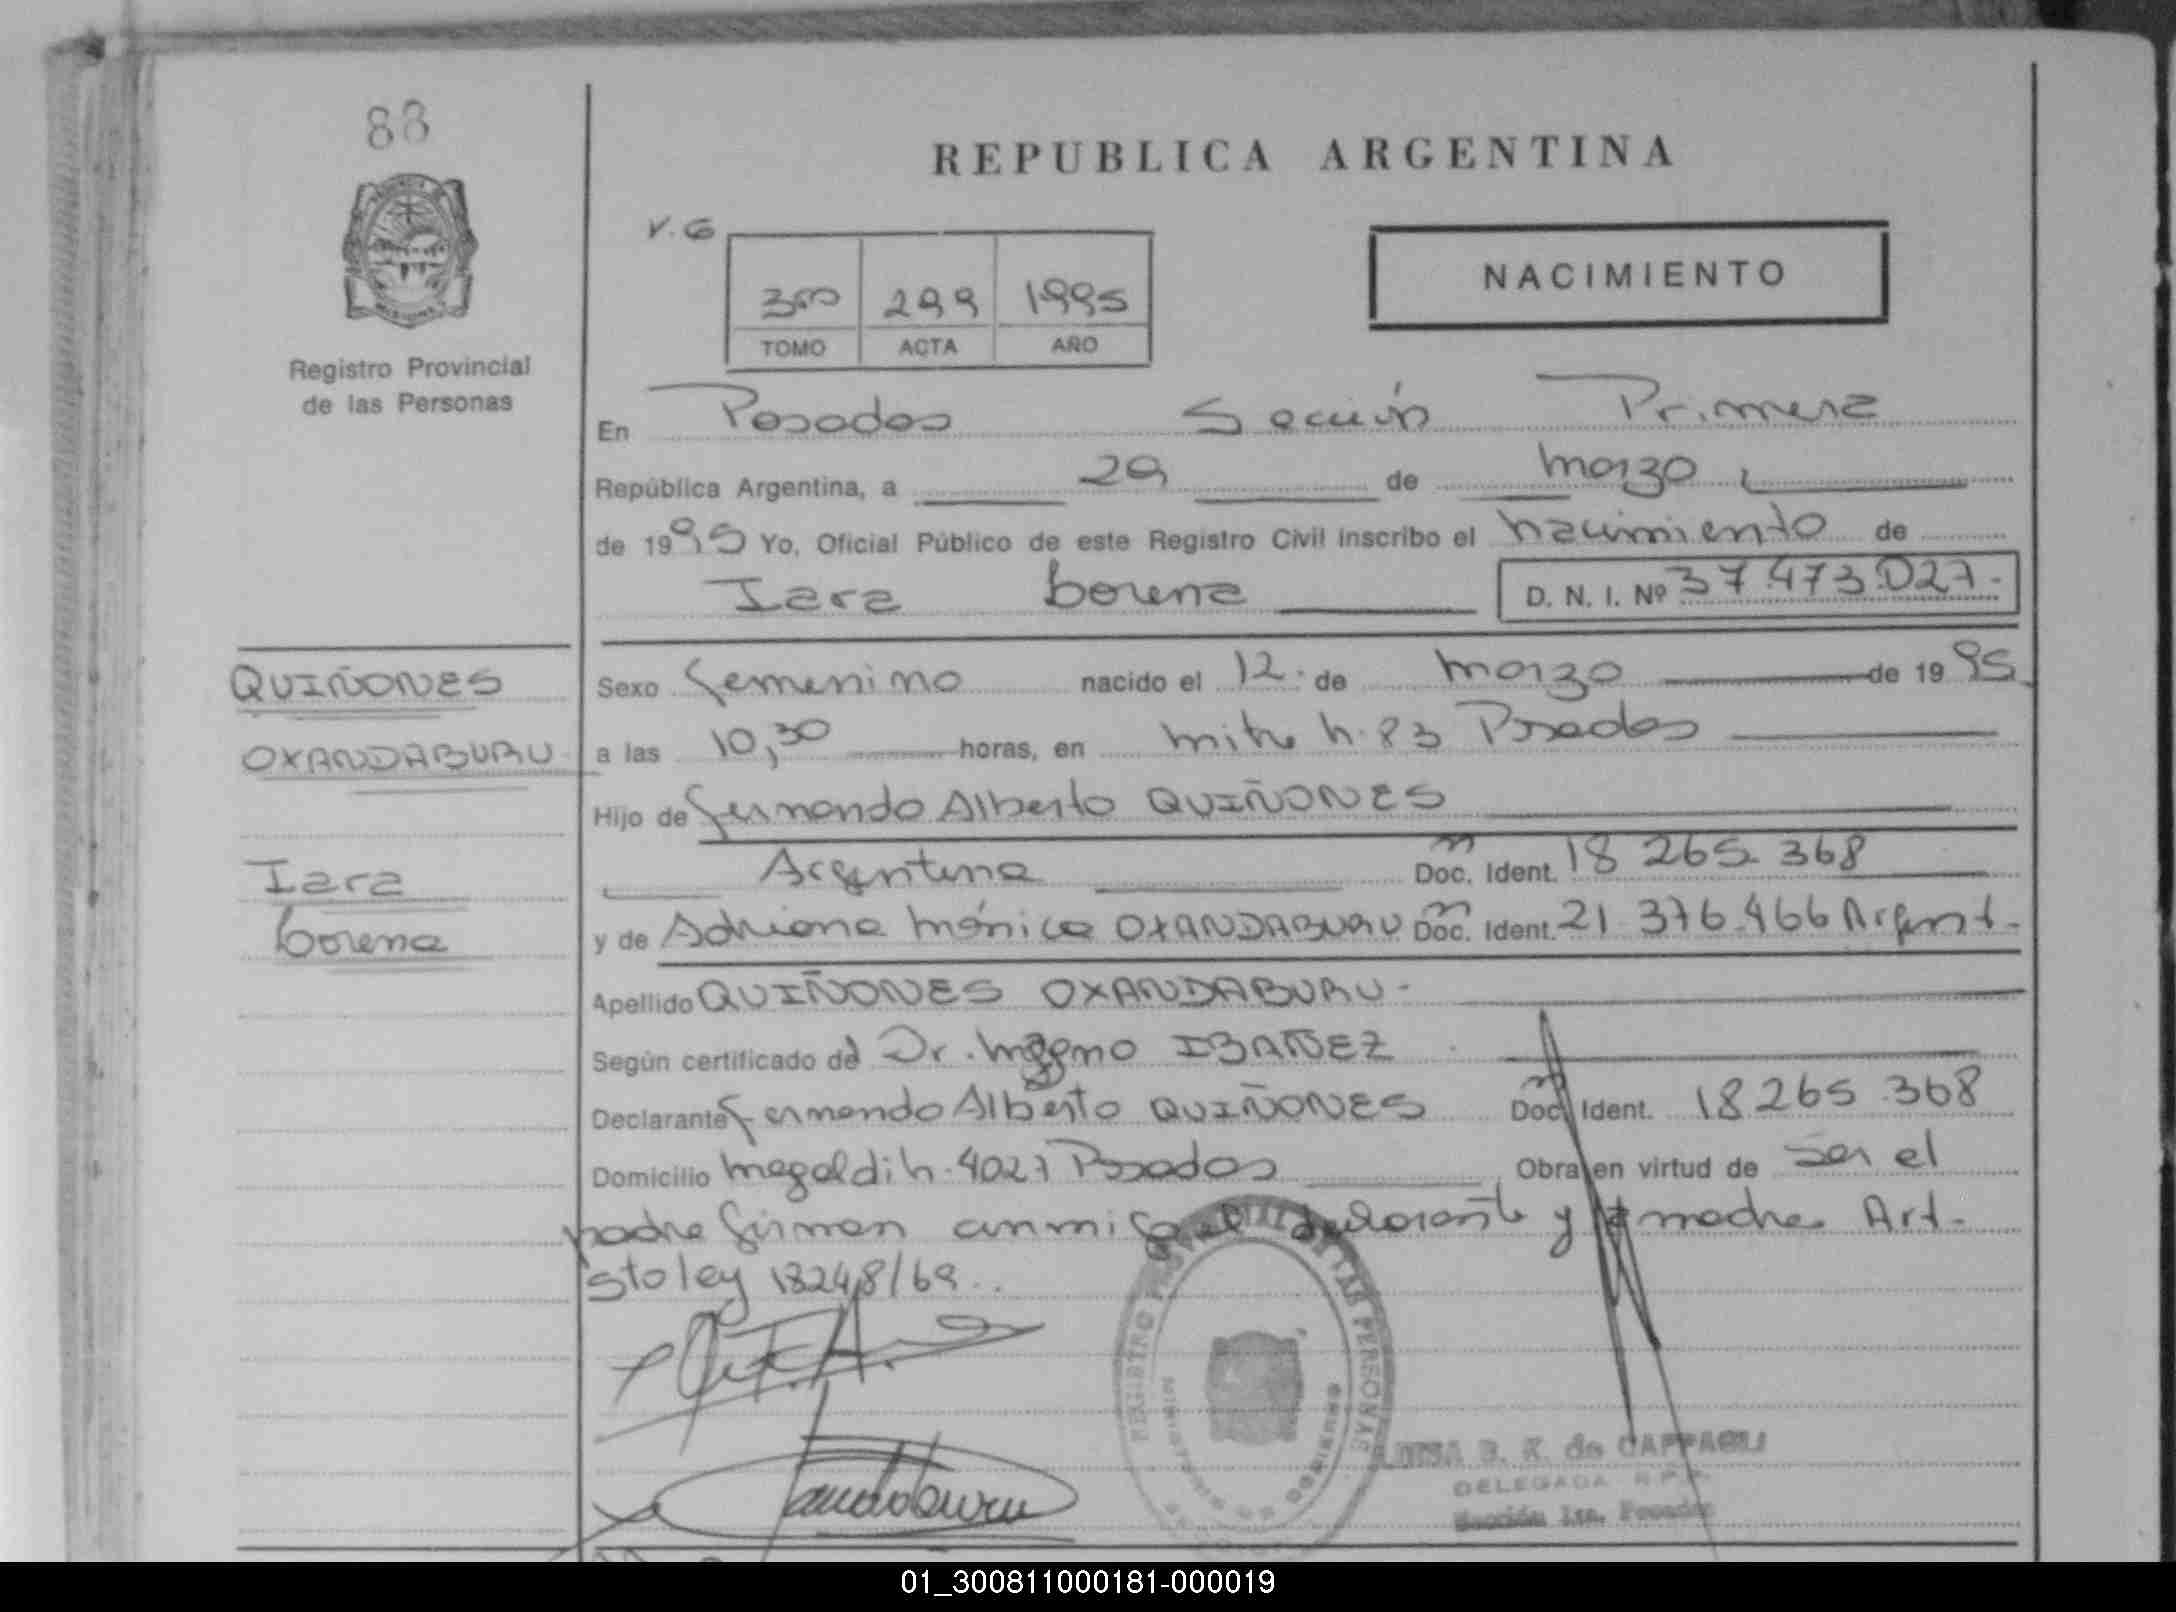 88
REPUBLICA ARGENTINA
V. G
300 299 1995
TOMO ACTA AÑO
NACIMIENTO
Registro Provincial
de las Personas
En Posadas Sección Primera
República Argentina, a 29 de marzo
de 1995 Yo, Oficial Público de este Registro Civil inscribo el nacimiento de
Iara Lorena D. N. I. Nº 37.473.027.-
QUIÑONES
OXANDABURU
Iara
Lorena
Sexo femenino nacido el 12 de marzo de 1995
a las 10,30 horas, en mitre n. 83 Posadas
Hijo de fernando Alberto QUIÑONES
Argentina Doc. Ident. 18 265 368
y de Adriana mónica OXANDABURU Doc. Ident. 21.376.466 Argent.
Apellido QUIÑONES OXANDABURU.-
Según certificado del Dr. IBAÑEZ
Declarante fernando Alberto QUIÑONES Doc. Ident. 18.265.368
Domicilio magaldi n. 4027 Posadas Obra en virtud de ser el
padre firman conmigo el declarante y la madre Art-
5to ley 18248/69..
REGISTRO PROVINCIAL DE LAS PERSONAS
MINISTERIO DE GOBIERNO
de CAFFAGLI
DELEGADA R.P.P.
Sección 1ra. Posadas
01_300811000181-000019